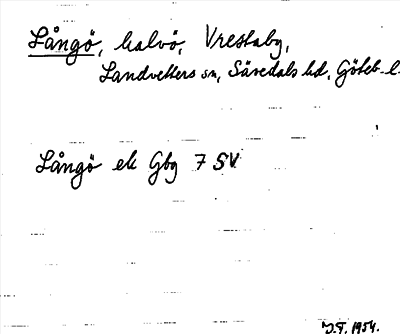 Långö, halvö, Vrestaby,
Landvetters sn, Sävedals hd, Göteb. l.
Långö ek Gbg 7 SV
J.T. 1954.